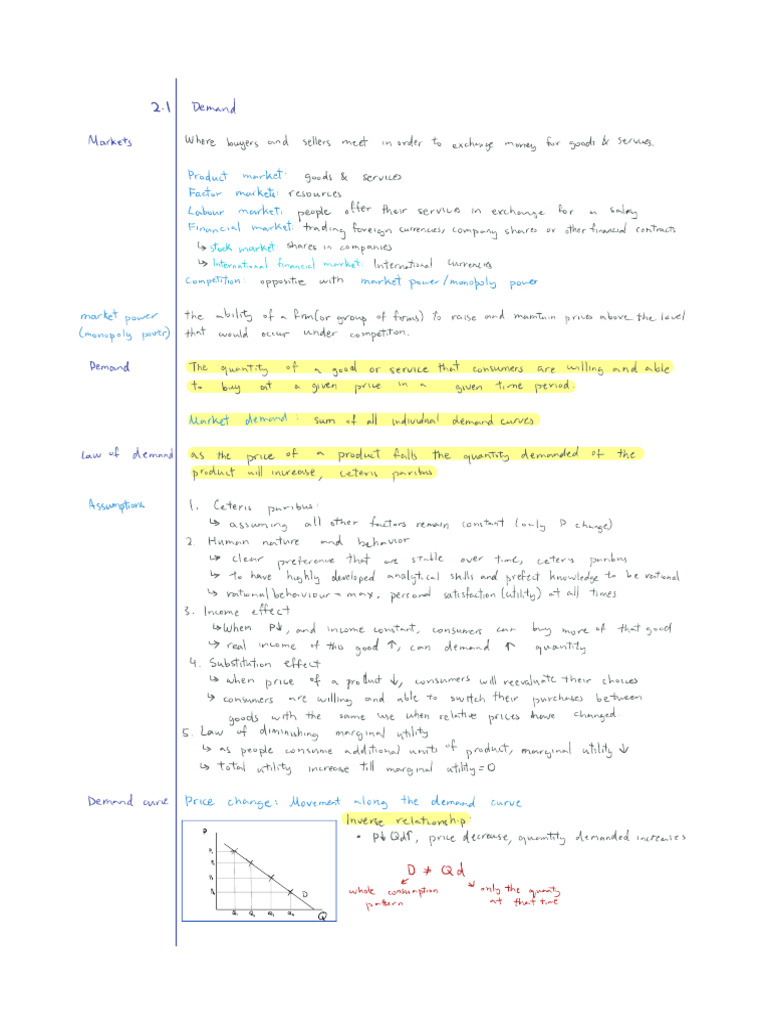 2.1 Demand
Markets Where buyers and sellers meet in order to exchange money for goods & services.
Product market: goods & services
Factor markets: resources
Labour market: people offer their services in exchange for a salary
Financial market: trading foreign currencies, company shares or other financial contracts
↳ stock market: shares in companies
↳ International financial market: International currencies
Competition: opposite with market power/monopoly power
market power the ability of a firm (or group of firms) to raise and maintain prices above the level
(monopoly power) that would occur under competition.
Demand The quantity of a good or service that consumers are willing and able
to buy at a given price in a given time period.
Market demand: sum of all individual demand curves
Law of demand as the price of a product falls the quantity demanded of the
product will increase, ceteris paribus
Assumptions 1. Ceteris paribus:
↳ assuming all other factors remain constant (only D change)
2. Human nature and behavior
↳ clear preference that are stable over time, ceteris paribus
↳ to have highly developed analytical skills and prefect knowledge to be rational
↳ rational behaviour = max. personal satisfaction (utility) at all times
3. Income effect
↳ When P↓, and income constant, consumers can buy more of that good
↳ real income of this good ↑, can demand ↑ quantity
4. Substitution effect
↳ when price of a product ↓, consumers will reevaluate their choices
↳ consumers are willing and able to switch their purchases between
goods with the same use when relative prices have changed.
5. Law of diminishing marginal utility
↳ as people consume additional units of product, marginal utility ↓
↳ total utility increase till marginal utility = 0
Demand curve Price change: Movement along the demand curve
Inverse relationship:
• P↓ Qd↑, price decrease, quantity demanded increases
D ≠ Qd
whole consumption pattern
only the quantity at that time
P
P₁
P₂
P₃
P₄
D
Q₁ Q₂ Q₃ Q₄ Q